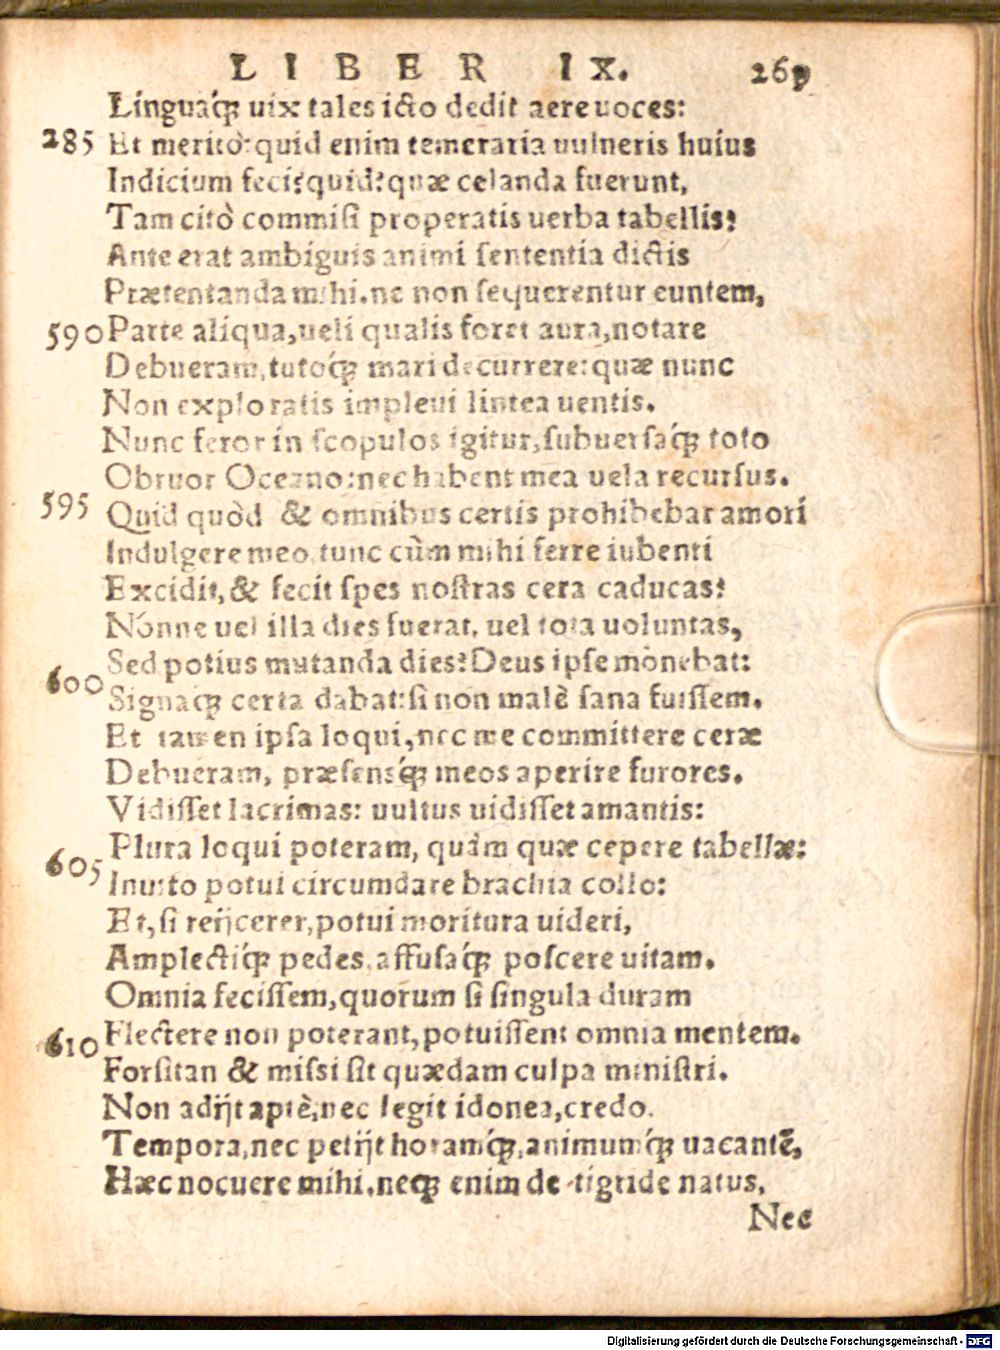 LIBER IX. 269
Linguaq́; uix tales icto dedit aere uoces:
285 Et meritò: quid enim temeraria uulneris huius
Indicium feci? quid? quæ celanda fuerunt,
Tam citò commisi properatis uerba tabellis?
Ante erat ambiguis animi sententia dictis
Prætentanda mihi. ne non sequerentur euntem,
590 Parte aliqua, ueli qualis foret aura, notare
Debueram, tutoq́; mari decurrere: quæ nunc
Non exploratis impleui lintea uentis.
Nunc feror in scopulos igitur, subuersaq́; toto
Obruor Oceano: nec habent mea uela recursus.
595 Quid quòd & omnibus certis prohibebar amori
Indulgere meo, tunc cùm mihi ferre iubenti
Excidit, & fecit spes nostras cera caducas?
Nónne uel illa dies fuerat, uel tota uoluntas,
Sed potius mutanda dies? Deus ipse monebat:
600 Signaq; certa dabat: si non malè sana fuissem.
Et tamen ipsa loqui, nec me committere ceræ
Debueram, præsensq́; meos aperire furores.
Vidisset lacrimas: uultus uidisset amantis:
Plura loqui poteram, quàm quæ cepere tabellæ:
605 Inuito potui circumdare brachia collo:
Et, si reijcerer, potui moritura uideri,
Amplectiq́; pedes, affusaq́; poscere uitam.
Omnia fecissem, quorum si singula duram
610 Flectere non poterant, potuissent omnia mentem.
Forsitan & missi sit quædam culpa ministri.
Non adijt aptè, nec legit idonea, credo.
Tempora, nec petijt horamq́;, animumq́; uacantẽ,
Hæc nocuere mihi. neq; enim de tigride natus,
Nec
Digitalisierung gefördert durch die Deutsche Forschungsgemeinschaft - DFG